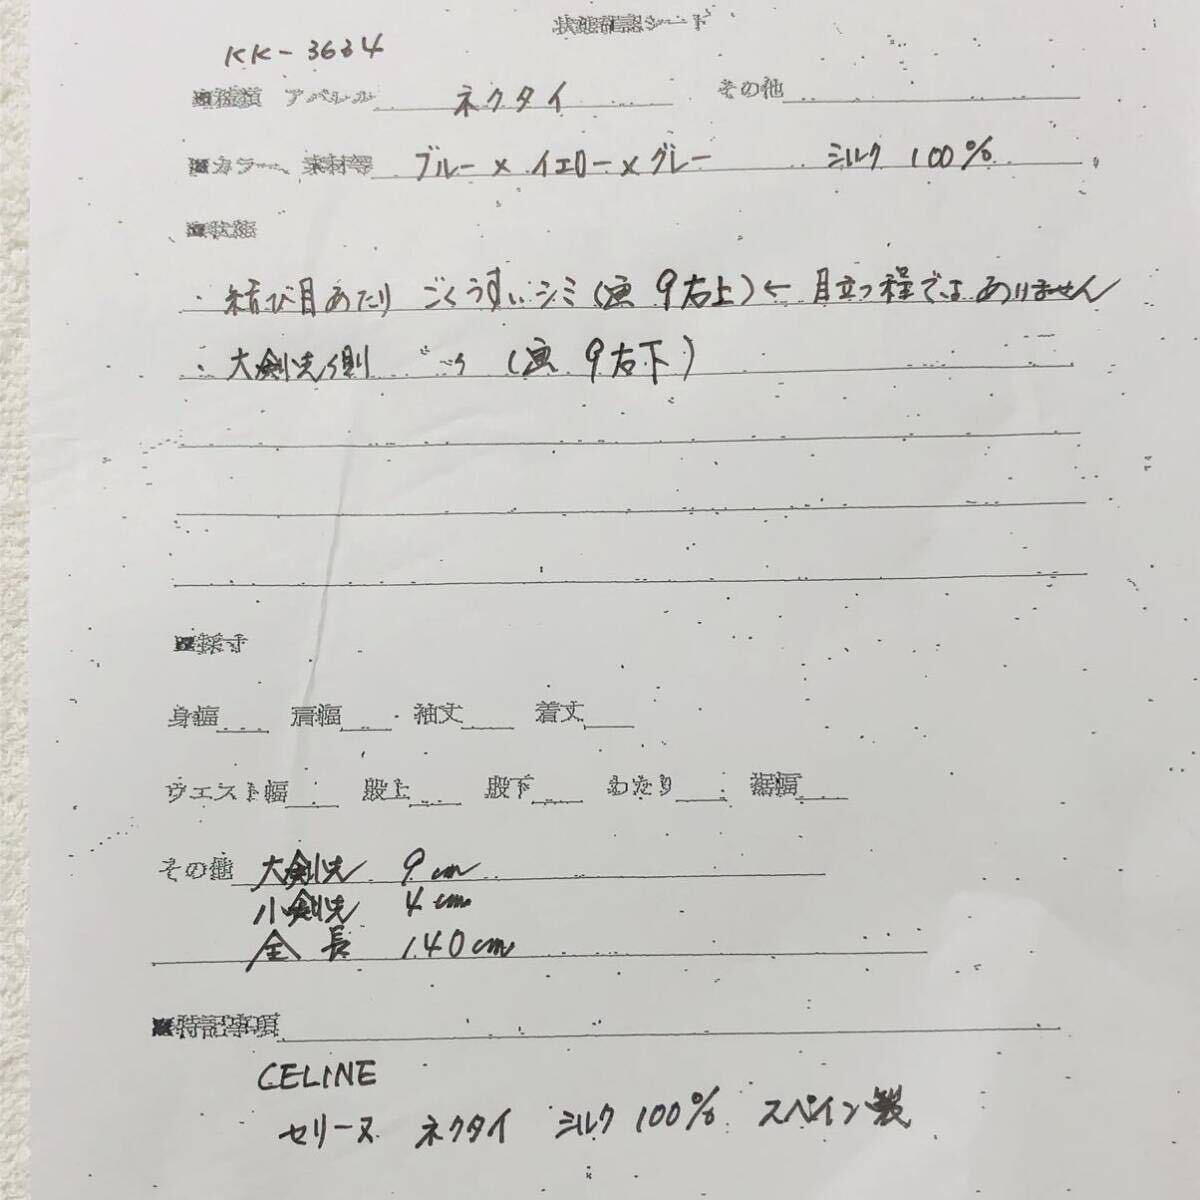 状態確認シート
KK-3634
■種類 アパレル ネクタイ その他
■カラー、素材等 ブルー×イエロー×グレー シルク 100%
■状態
・結び目あたり ごくうすいシミ(画 9右上)← 目立つ程ではありません
・大剣先側 〃 (画 9右下)
■採寸
身幅 肩幅 袖丈 着丈
ウエスト幅 股上 股下 わたり 裾幅
その他 大剣先 9cm
小剣先 4cm
全長 140cm
■特記事項
CELINE
セリーヌ ネクタイ シルク 100% スペイン製